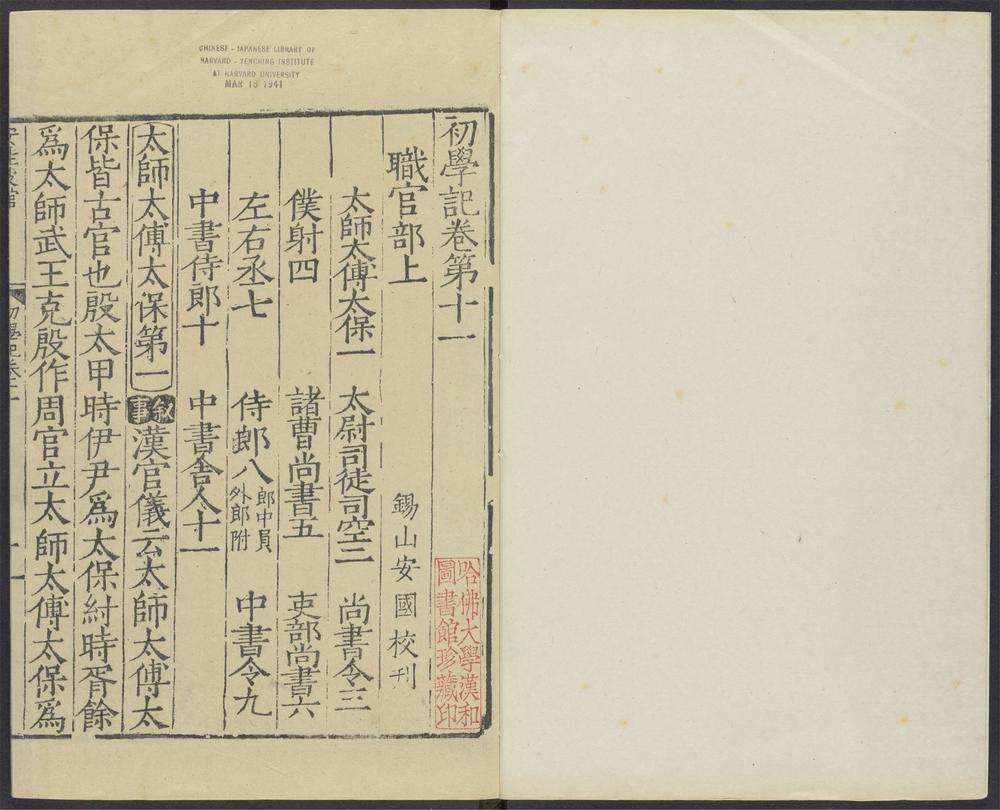 CHINESE - JAPANESE LIBRARY OF
HARVARD - YENCHING INSTITUTE
AT HARVARD UNIVERSITY
MAR 15 1941
初學記卷第十一
哈佛大學漢和
圖書館珍藏印
職官部上
錫山安國校刊
太師太傅太保一 太尉司徒司空二 尚書令三
僕射四 諸曹尚書五 吏部尚書六
左右丞七 侍郎八郎中員外郎附 中書令九
中書侍郎十 中書舍人十一
太師太傅太保第一 敘事 漢官儀云太師太傅太
保皆古官也殷太甲時伊尹爲太保紂時胥餘
爲太師武王克殷作周官立太師太傅太保爲